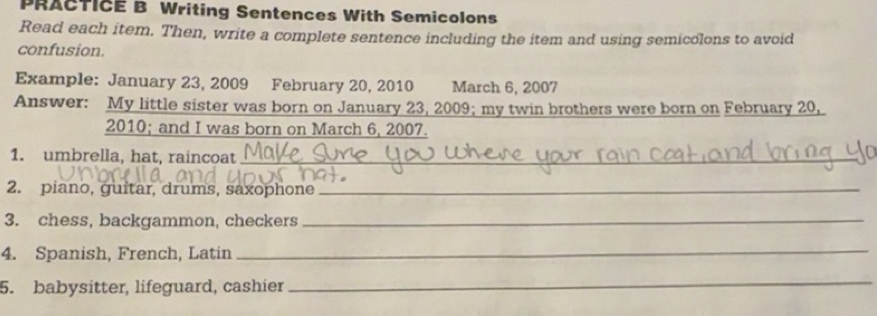 PRACTICE B Writing Sentences With Semicolons
Read each item. Then, write a complete sentence including the item and using semicolons to avoid
confusion.
Example: January 23, 2009 February 20, 2010 March 6, 2007
Answer: My little sister was born on January 23, 2009; my twin brothers were born on February 20,
2010; and I was born on March 6, 2007.
1. umbrella, hat, raincoat Make Sure you where your rain coat, and bring yo
Unbrella and your hat.
2. piano, guitar, drums, saxophone
3. chess, backgammon, checkers
4. Spanish, French, Latin
5. babysitter, lifeguard, cashier